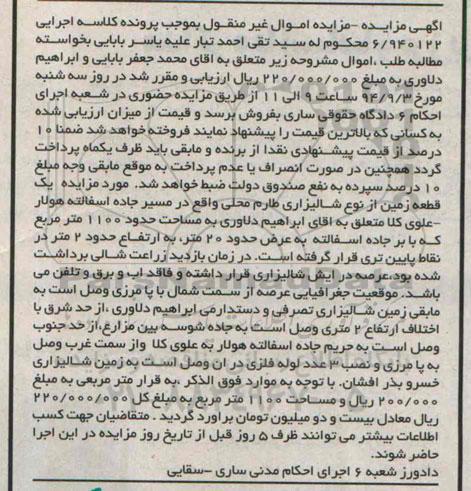 آگهی مزایده -مزایده اموال غیر منقول بموجب پرونده کلاسه اجرایی
۶/۹۴۰۱۲۲ محکوم له سید تقی احمد تبار علیه یاسر بابایی بخواسته
مطالبه طلب ،اموال مشروحه زیر متعلق به اقای محمد جعفر بابایی و ابراهیم
دلاوری به مبلغ ۲۲۰/۰۰۰/۰۰۰ ریال ارزیابی و مقرر شد در روز سه شنبه
مورخ ۹۴/۹/۳ ساعت ۹ الی ۱۱ از طریق مزایده حضوری در شعبه اجرای
احکام ۶ دادگاه حقوقی ساری بفروش برسد و قیمت از میزان ارزیابی شده
به کسانی که بالاترین قیمت را پیشنهاد نمایند فروخته خواهد شد ضمنا ۱۰
درصد از قیمت پیشنهادی نقدا از برنده و مابقی باید ظرف یکماه پرداخت
گردد همچنین در صورت انصراف یا عدم پرداخت به موقع مابقی وجه مبلغ
۱۰ درصد سپرده به نفع صندوق دولت ضبط خواهد شد. مورد مزایده یک
قطعه زمین از نوع شالیزاری طارم محلی واقع در مسیر جاده اسفالته هولار
-علوی کلا متعلق به اقای ابراهیم دلاوری به مساحت حدود ۱۱۰۰ متر مربع
که با بر جاده اسفالته به عرض حدود ۲۰ متر، به ارتفاع حدود ۲ متر در
نقاط پایین تری قرار گرفته است. در زمان بازدید زراعت شالی برداشت
شده بود،عرصه در ایش شالیزاری قرار داشته و فاقد اب و برق و تلفن می
باشد. موقعیت جغرافیایی عرصه از سمت شمال با پا مرزی وصل است به
مابقی زمین شالیزاری تصرفی و دستدارمی ابراهیم دلاوری ،از حد شرق با
اختلاف ارتفاع ۲ متری وصل است به جاده شوسه بین مزارع،از حد جنوب
وصل است به حریم جاده اسفالته هولار به علوی کلا واز سمت غرب وصل
به پا مرزی و نصب ۳ عدد لوله فلزی در ان وصل است به زمین شالیزاری
خسرو بذر افشان. با توجه به موارد فوق الذکر ،به قرار متر مربعی به مبلغ
۲۰۰/۰۰۰ ریال و مساحت ۱۱۰۰ متر مربع به مبلغ کل ۲۲۰/۰۰۰/۰۰۰
ریال معادل بیست و دو میلیون تومان براورد گردید . متقاضیان جهت کسب
اطلاعات بیشتر می توانند ظرف ۵ روز قبل از تاریخ روز مزایده در این اجرا
حاضر شوند.
دادورز شعبه ۶ اجرای احکام مدنی ساری -سقایی